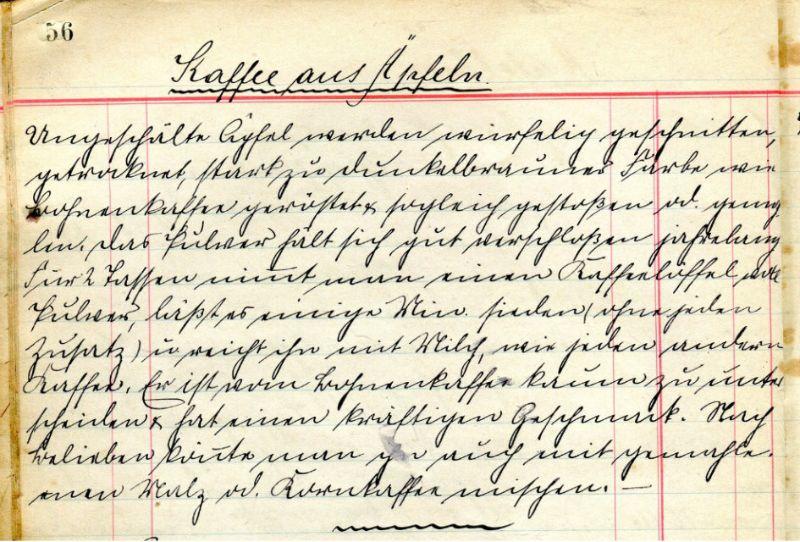 56
Kaffee aus Äpfeln.
Ungeschälte Äpfel werden würfelig geschnitten,
getrocknet, stark zu dunkelbrauner Farbe wie
Bohnenkaffee geröstet & sogleich gestoßen od. gemah
len. Das Pulver hält sich gut verschloßen jahrelang
Für 2 Tassen nimmt man einen Kaffeelöffel voll
Pulver, läßt es einige Min. sieden (ohne jeden
Zusatz) u reicht ihn mit Milch, wie jeden andern
Kaffee. Er ist vom Bohnenkaffee kaum zu unter
scheiden & hat einen kräftigen Geschmack. Nach
Belieben könnte man ihn auch mit gemahle-
enen Malz od. Kornkaffee mischen. —